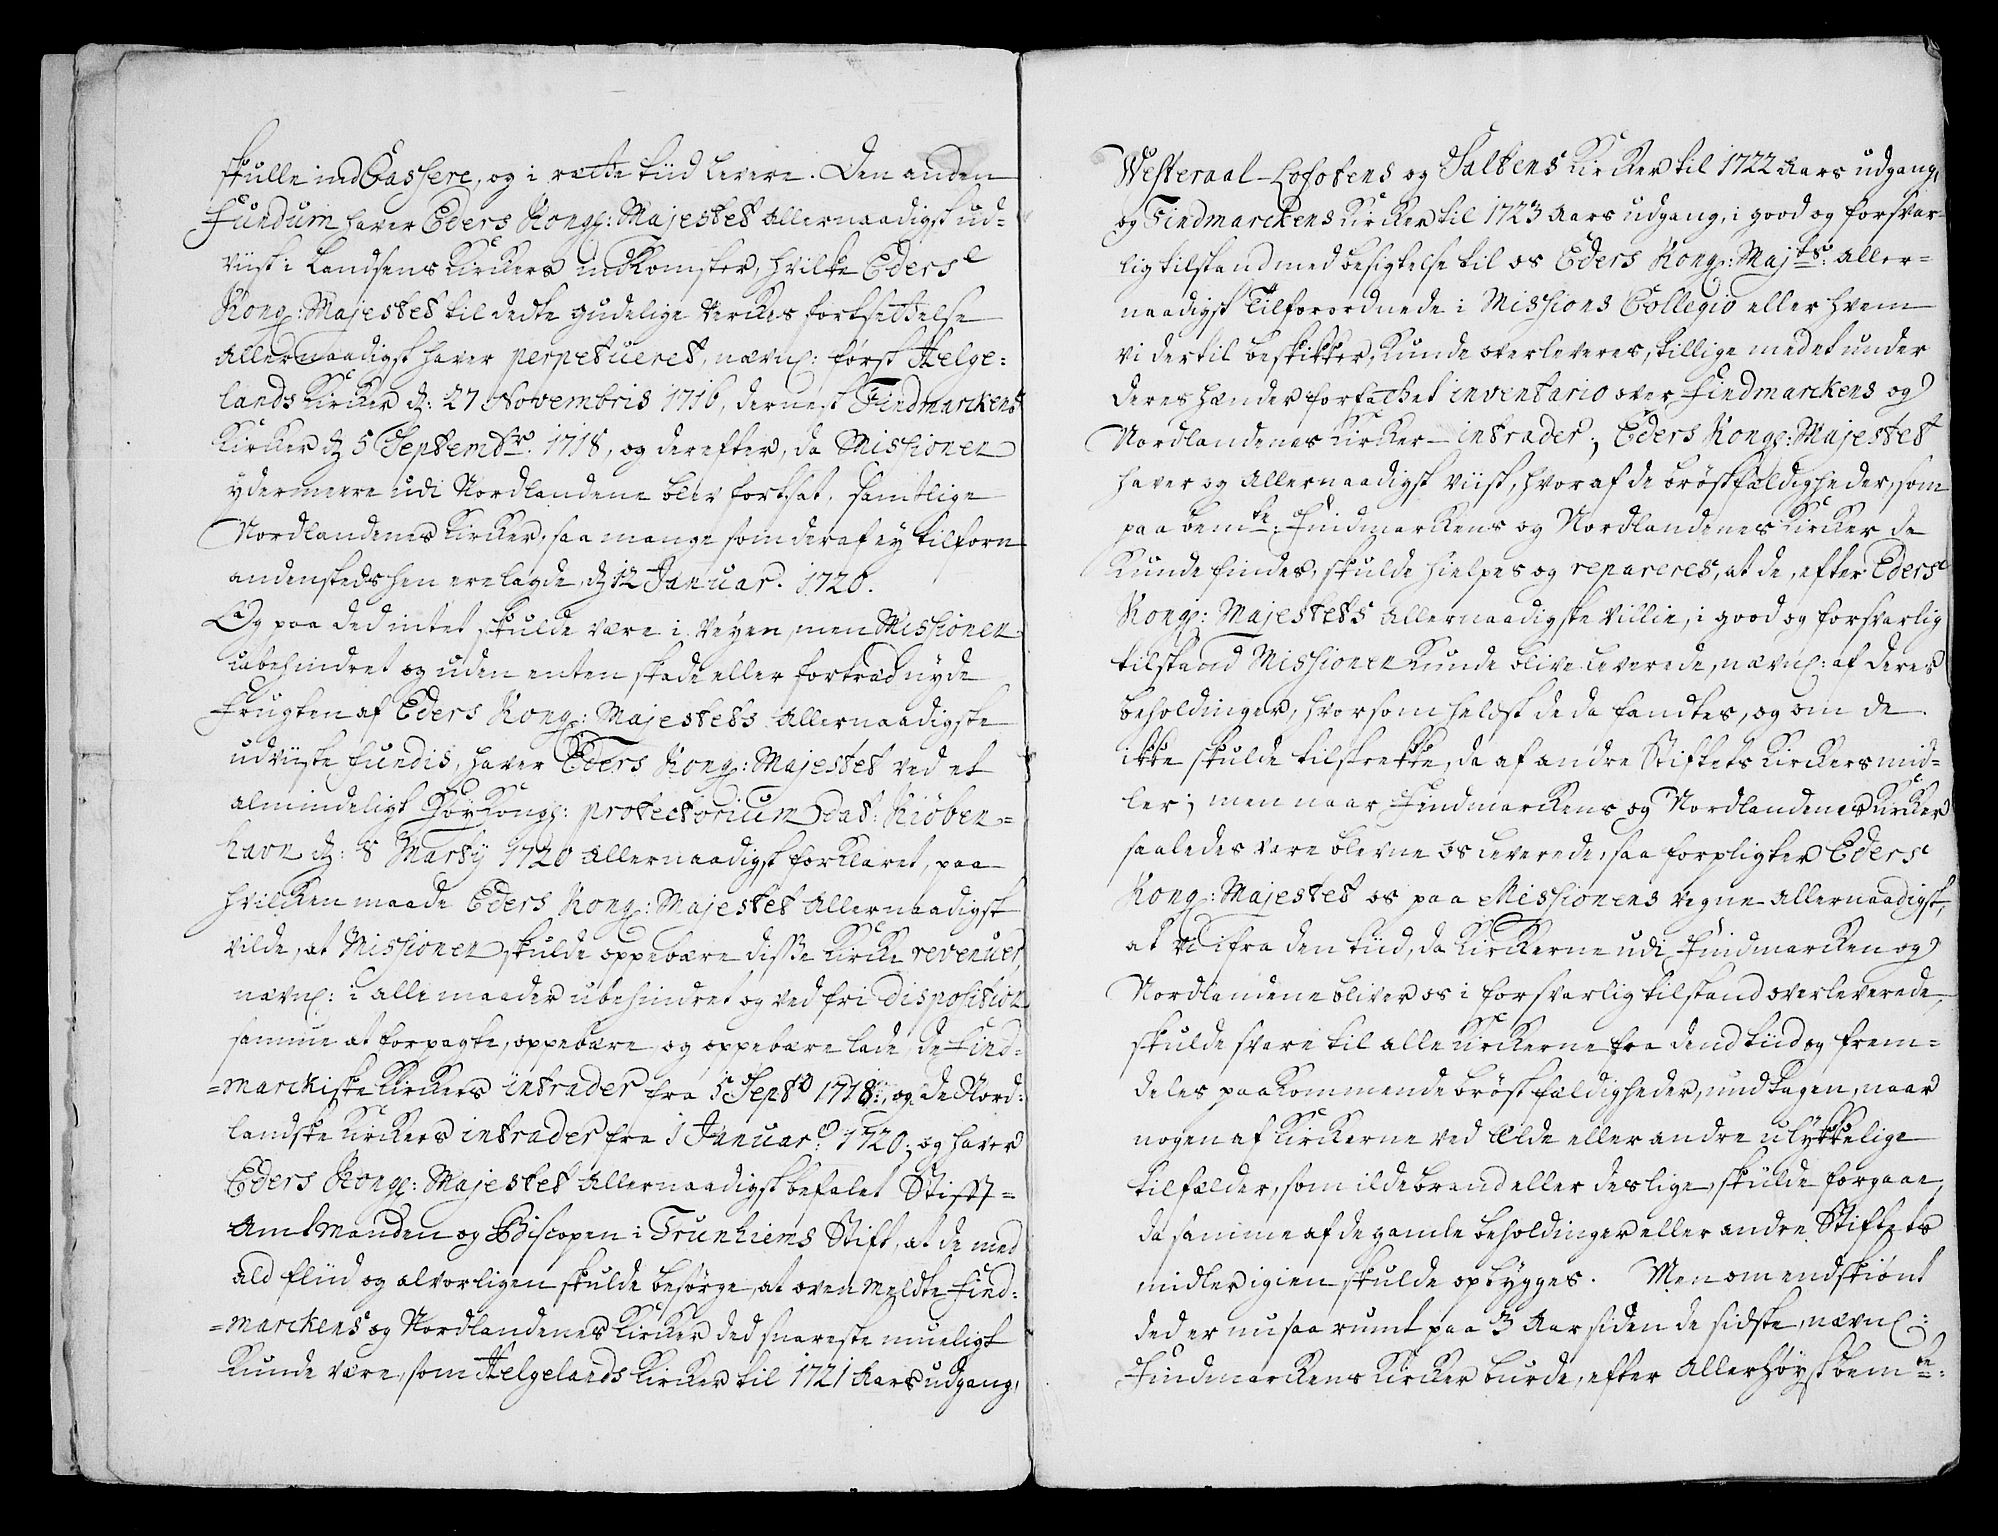 skulle ind Cassere, og i rætte tiid levere. Den anden
Fundum haver Eders Kongl: Majestet Allernaadigst ud-
viist i Landsens Kirckers indkomster, hvilke Eders
Kongl: Majestet til dette gudelige Verckes fortsettelse
Allernaadigst haver perpetueret, nævnl: først Helge-
lands Kircker d: 27 Novembris 1716, dernest Findmarckens
Kircker d 5 Septembr. 1718, og derefter, da Missionen
ydermeere udi Nordlandene blev fortsat, samtlige
Nordlandenes Kircker, saa mange som deraf ey tilforn
andensteds hen ere lagde, d 12 Januar. 1720.
Og paa ded intet skulde være i Veyen, men Missionen
ubehindret og uden enten skade eller fortræd nyde
Frugten af Eders Kongl: Majestets Allernaadigste
udviiste fundis, haver Eders Kongl: Majestet ved et
almindeligt Høy Kongl: protectorium Dat: Kiøben-
havn d: 8 Martij 1720 Allernaadigst forklaret, paa
hvilcken maade Eders Kongl: Majestet Allernaadigst
vilde, at Missionen skulde oppebære disse Kircke revenuer,
nævnl: i alle maader ubehindret og ved fri Disposition
samme at forpagte, oppebære og oppebære lade, de Find-
=marckiske Kirckers intrader fra 5 Septb 1718, og de Nord-
landske Kirckers intrader fra 1 Januar: 1720; og haver
Eders Kongl: Majestet Allernaadigst befalet Stift-
Amtmanden og Biscopen i Trunhiems Stift, at de med
ald fliid og alvorligen skulde besørge, at oven meldte Find-
=marckens og Nordlandenes Kircker ded snareste mueligt
kunde være, som Helgelands Kircker til 1721 Aars udgang,
Westeraal-Lofotens og Saltens Kircker til 1722 Aars udgang,
og Findmarckens Kircker til 1723 Aars udgang, i good og forsvar-
lig tilstand med besigtelse til os Eders Kongl: Majts: Aller-
naadigst Tilforordnede i Missions Collegio eller hvem
vi dertil beskikker, kunde overleveres, tillige med et under
deres hænder forfattet inventario over Findmarckens og
Nordlandenes Kircker-intrader; Eders Kongl: Majestet
haver og Allernaadigst viist, hvoraf de brøstfældigheder, som
paa bemte: Findmarckens og Nordlandenes Kircker da
kunde findes, skulde hielpes og repareres, at de, efter Eders
Kongl: Majestets Allernaadigste Villie, i good og forsvarlig
tilstand Missionen kunde blive leverede, nævnl: af deres
beholdinger, hvorsomhelst de da fandtes, og om de
ikke skulde tilstrekke, da af andre Stiftets Kirckers mid-
ler; men naar Findmarckens og Nordlandenes Kircker
saaledes vare blevne os leverede, saa forpligter Eders
Kongl: Majestet os paa Missionens vegne Allernaadigst,
at vi ifra den tiid, da Kirckerne udi Findmarcken og
Nordlandene bliver os i forsvarlig tilstand overleverede,
skulde svare til alle Kirckerne fra dend tiid og frem-
deles paakommende brøstfældigheder, undtagen, naar
nogen af Kirckerne ved Ælde eller andre ulykkelige
tilfælder, som ildebrand eller deslige, skulde forgaae,
da samme af de gamle beholdinger eller andre Stiftets
midler igien skulde opbygges. Men omendskiønt
ded er nu saa rumt paa 3 Aar siden de sidste, nævnl:
Findmarckens Kircker burde, efter Allerhøystbemte: